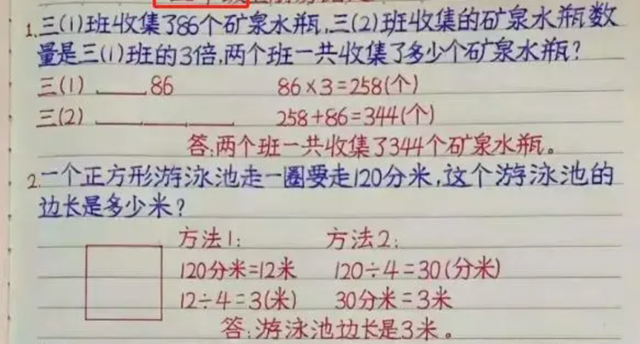 1.三(1)班收集了86个矿泉水瓶,三(2)班收集的矿泉水瓶数
量是三(1)班的3倍,两个班一共收集了多少个矿泉水瓶?
三(1) 86 86×3=258(个)
三(2) 258+86=344(个)
答:两个班一共收集了344个矿泉水瓶。
2.一个正方形游泳池走一圈要走120分米,这个游泳池的
边长是多少米?
方法1: 方法2:
120分米=12米 120÷4=30(分米)
12÷4=3(米) 30分米=3米
答:游泳池边长是3米。